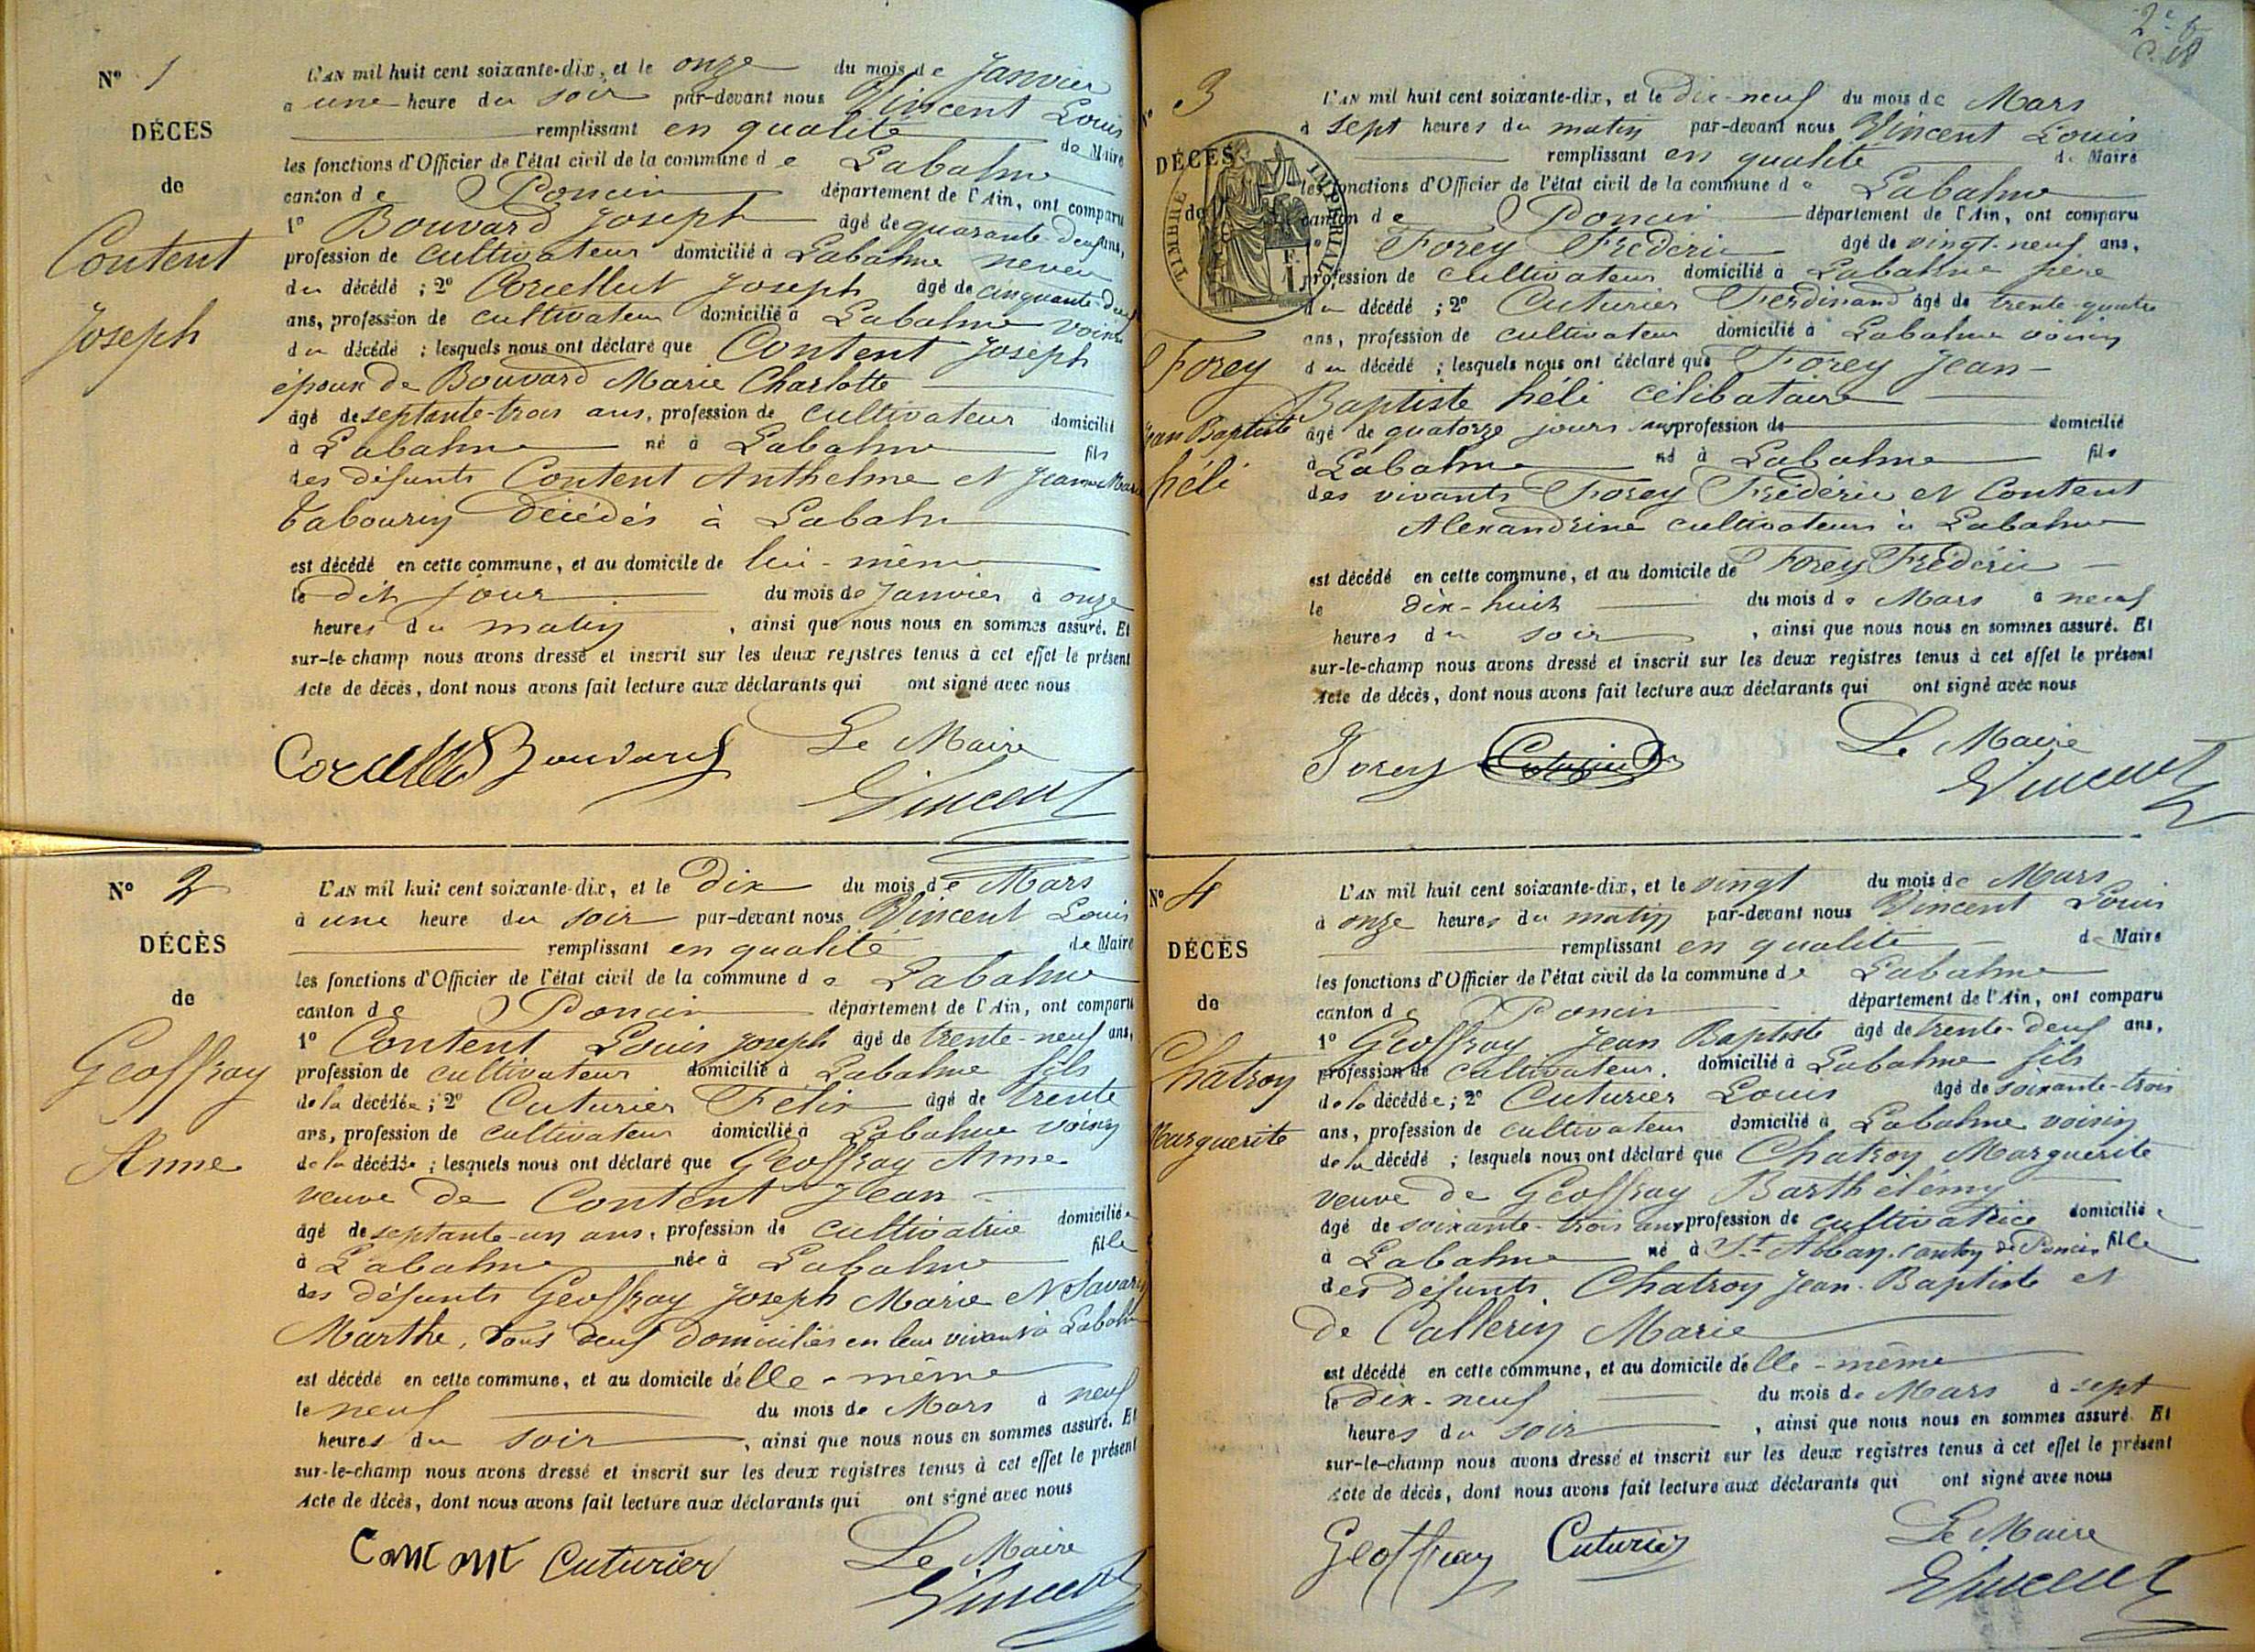 N° 1
DÉCÈS
de
Content
Joseph
L'AN mil huit cent soixante-dix, et le onze du mois de Janvier
a une heure du soir par-devant nous Vincent Louis
remplissant en qualité de Maire
les fonctions d'Officier de l'état civil de la commune de Labalme
canton de Poncin département de l'Ain, ont comparu
1° Bouvard Joseph âgé de quarante-deux ans,
profession de cultivateur domicilié à Labalme neveu
du décédé ; 2° Corcellut Joseph âgé de cinquante-deux
ans, profession de cultivateur domicilié à Labalme voisin
du décédé ; lesquels nous ont déclaré que Content Joseph
époux de Bouvard Marie Charlotte
âgé de septante-trois ans, profession de cultivateur domicilié
à Labalme né à Labalme fils
des défunts Content Anthelme et Jeanne Marie
Tabourin décédés à Labalm
est décédé en cette commune, et au domicile de lui-même
le dix jour du mois de Janvier à onze
heures du matin, ainsi que nous nous en sommes assuré. Et
sur-le-champ nous avons dressé et inscrit sur les deux registres tenus à cet effet le présent
Acte de décès, dont nous avons fait lecture aux déclarants qui ont signé avec nous
Bouvard Le Maire
Vincent
N° 2
DÉCÈS
de
Geoffray
Anne
L'AN mil huit cent soixante-dix, et le dix du mois de Mars
à une heure du soir par-devant nous Vincent Louis
remplissant en qualité de Maire
les fonctions d'Officier de l'état civil de la commune de Labalme
canton de Poncin département de l'Ain, ont comparu
1° Content Louis Joseph âgé de trente-neuf ans,
profession de cultivateur domicilié à Labalme fils
de la décédée ; 2° Cuturier Félix âgé de trente
ans, profession de cultivateur domicilié à Labalme voisin
de la décédée ; lesquels nous ont déclaré que Geoffray Anne
veuve de Content Jean
âgé de septante-un ans, profession de cultivatrice domiciliée
à Labalme née à Labalme fille
des défunts Geoffray Joseph Marie et Savarin
Marthe, tous deux domiciliés en leur vivant à Labalm
est décédé en cette commune, et au domicile d'elle-même
le neuf du mois de Mars à neuf
heures du soir, ainsi que nous nous en sommes assuré. Et
sur-le-champ nous avons dressé et inscrit sur les deux registres tenus à cet effet le présent
Acte de décès, dont nous avons fait lecture aux déclarants qui ont signé avec nous
Content Cuturier Le Maire
Vincent
N° 3
DÉCÈS
de
TIMBRE IMPÉRIAL
Forey
Jean Baptiste
héli
L'AN mil huit cent soixante-dix, et le dix-neuf du mois de Mars
à sept heures du matin par-devant nous Vincent Louis
remplissant en qualité de Maire
les fonctions d'Officier de l'état civil de la commune de Labalme
canton de Poncin département de l'Ain, ont comparu
1° Forey Frédéric âgé de vingt-neuf ans,
profession de cultivateur domicilié à Labalme père
du décédé ; 2° Cuturier Ferdinand âgé de trente-quatre
ans, profession de cultivateur domicilié à Labalme voisin
du décédé ; lesquels nous ont déclaré que Forey Jean-
Baptiste héli célibataire
âgé de quatorze jours ans, profession de domicilié
à Labalme né à Labalme fils
des vivants Forey Frédéric et Content
Alexandrine cultivateurs à Labalme
est décédé en cette commune, et au domicile de Forey Frédéric
le dix-huit du mois de Mars à neuf
heures du soir, ainsi que nous nous en sommes assuré. Et
sur-le-champ nous avons dressé et inscrit sur les deux registres tenus à cet effet le présent
Acte de décès, dont nous avons fait lecture aux déclarants qui ont signé avec nous
Forey Cuturier Le Maire
Vincent
N° 4
DÉCÈS
de
Chatroy
Marguerite
L'AN mil huit cent soixante-dix, et le vingt du mois de Mars
à onze heures du matin par-devant nous Vincent Louis
remplissant en qualité de Maire
les fonctions d'Officier de l'état civil de la commune de Labalme
canton de Poncin département de l'Ain, ont comparu
1° Geoffray Jean Baptiste âgé de trente-deux ans,
profession de cultivateur. domicilié à Labalme fils
de la décédée ; 2° Cuturier Louis âgé de soixante-trois
ans, profession de cultivateur domicilié à Labalme voisin
de la décédé ; lesquels nous ont déclaré que Chatroy Marguerite
veuve de Geoffray Barthélémy
âgé de soixante-trois ans profession de cultivatrice domiciliée
à Labalme né à St Alban, canton de Poncin fille
des défunts Chatroy Jean-Baptiste et
de Callerin Marie
est décédé en cette commune, et au domicile d'elle-même
le dix-neuf du mois de Mars à sept
heures du soir, ainsi que nous nous en sommes assuré. Et
sur-le-champ nous avons dressé et inscrit sur les deux registres tenus à cet effet le présent
Acte de décès, dont nous avons fait lecture aux déclarants qui ont signé avec nous
Geoffray Cuturier Le Maire
Vincent